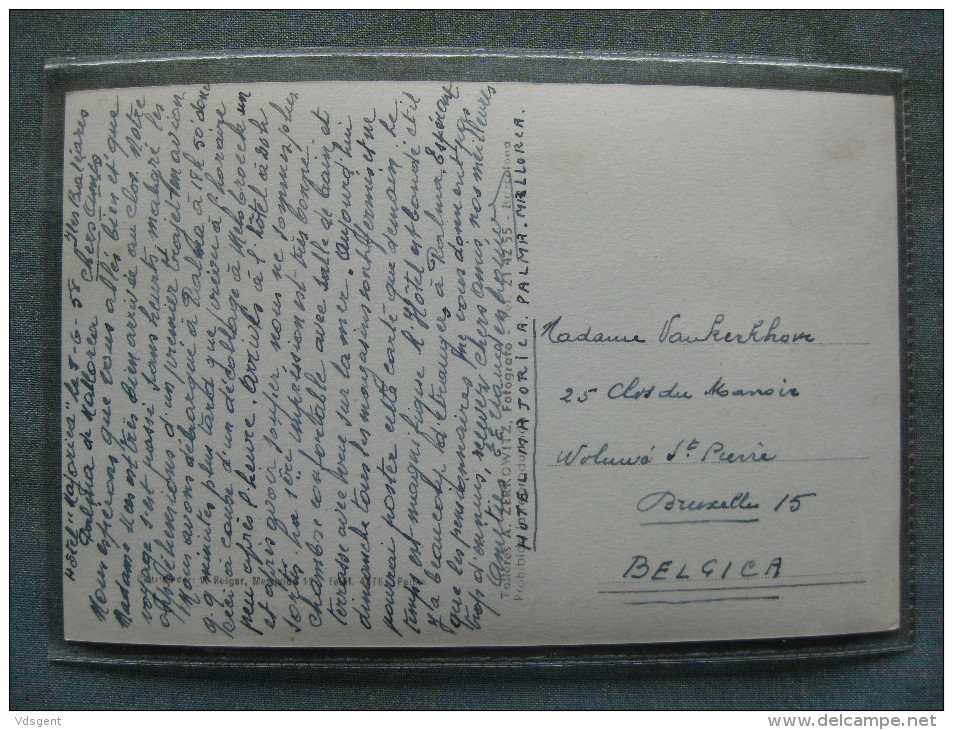 Hôtel "Majorica" le 8-6-58 Iles Baléares
Palma de Mallorca Chers Amis
Nous espérons que vous allés bien et que
Madame s'est très bien arrivée au Clos. Notre
voyage s'est passé sans heurts malgré les
appréhensions d'un premier trajet en avion
Nous avons débarqué à Palma à 18h 50 donc
q.q minutes plus tard que prévu à l'horaire
Ceci à cause d'un décollage à Melsbroeck un
peu après l'heure. Arrivés à l'hôtel à 20h
et après avoir souper, nous ne sommes plus
sortis. La 1ère impression est très bonne.
chambre confortable avec salle de bain et
terrasse avec vue sur la mer. Aujourd'hui
dimanche tous les magasins sont fermés et ne
pourrai poster cette carte que demain. Le
temps est magnifique. L'Hôtel est bondé et il
y a beaucoup d'étrangers à Palma. Espérons
que les pensionnaires ne vous donnent pas
trop d'ennuis, recever chers amis nos meilleures
amitiés
HOTEL MAJORICA. PALMA. MALLORCA.
Talleres A. ZERKOWITZ, Fotógrafo - Tel. 21 42 55 - Barcelona
Prohibida
Madame Vankerkhove
25 Clos du Manoir
Woluwé St Pierre
Bruxelles 15
BELGICA
Vdsgent
www.delcampe.net